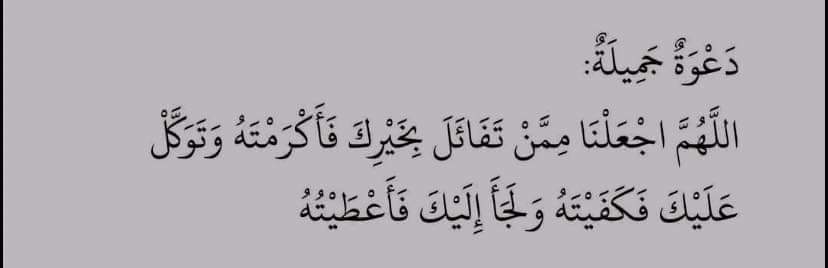 دَعْوَةٌ جَمِيلَةٌ:
اللَّهُمَّ اجْعَلْنَا مِمَّنْ تَفَائَلَ بِخَيْرِكَ فَأَكْرَمْتَهُ وَتَوَكَّلْ
عَلَيْكَ فَكَفَيْتَهُ وَلَجَأَ إِلَيْكَ فَأَعْطَيْتُهُ